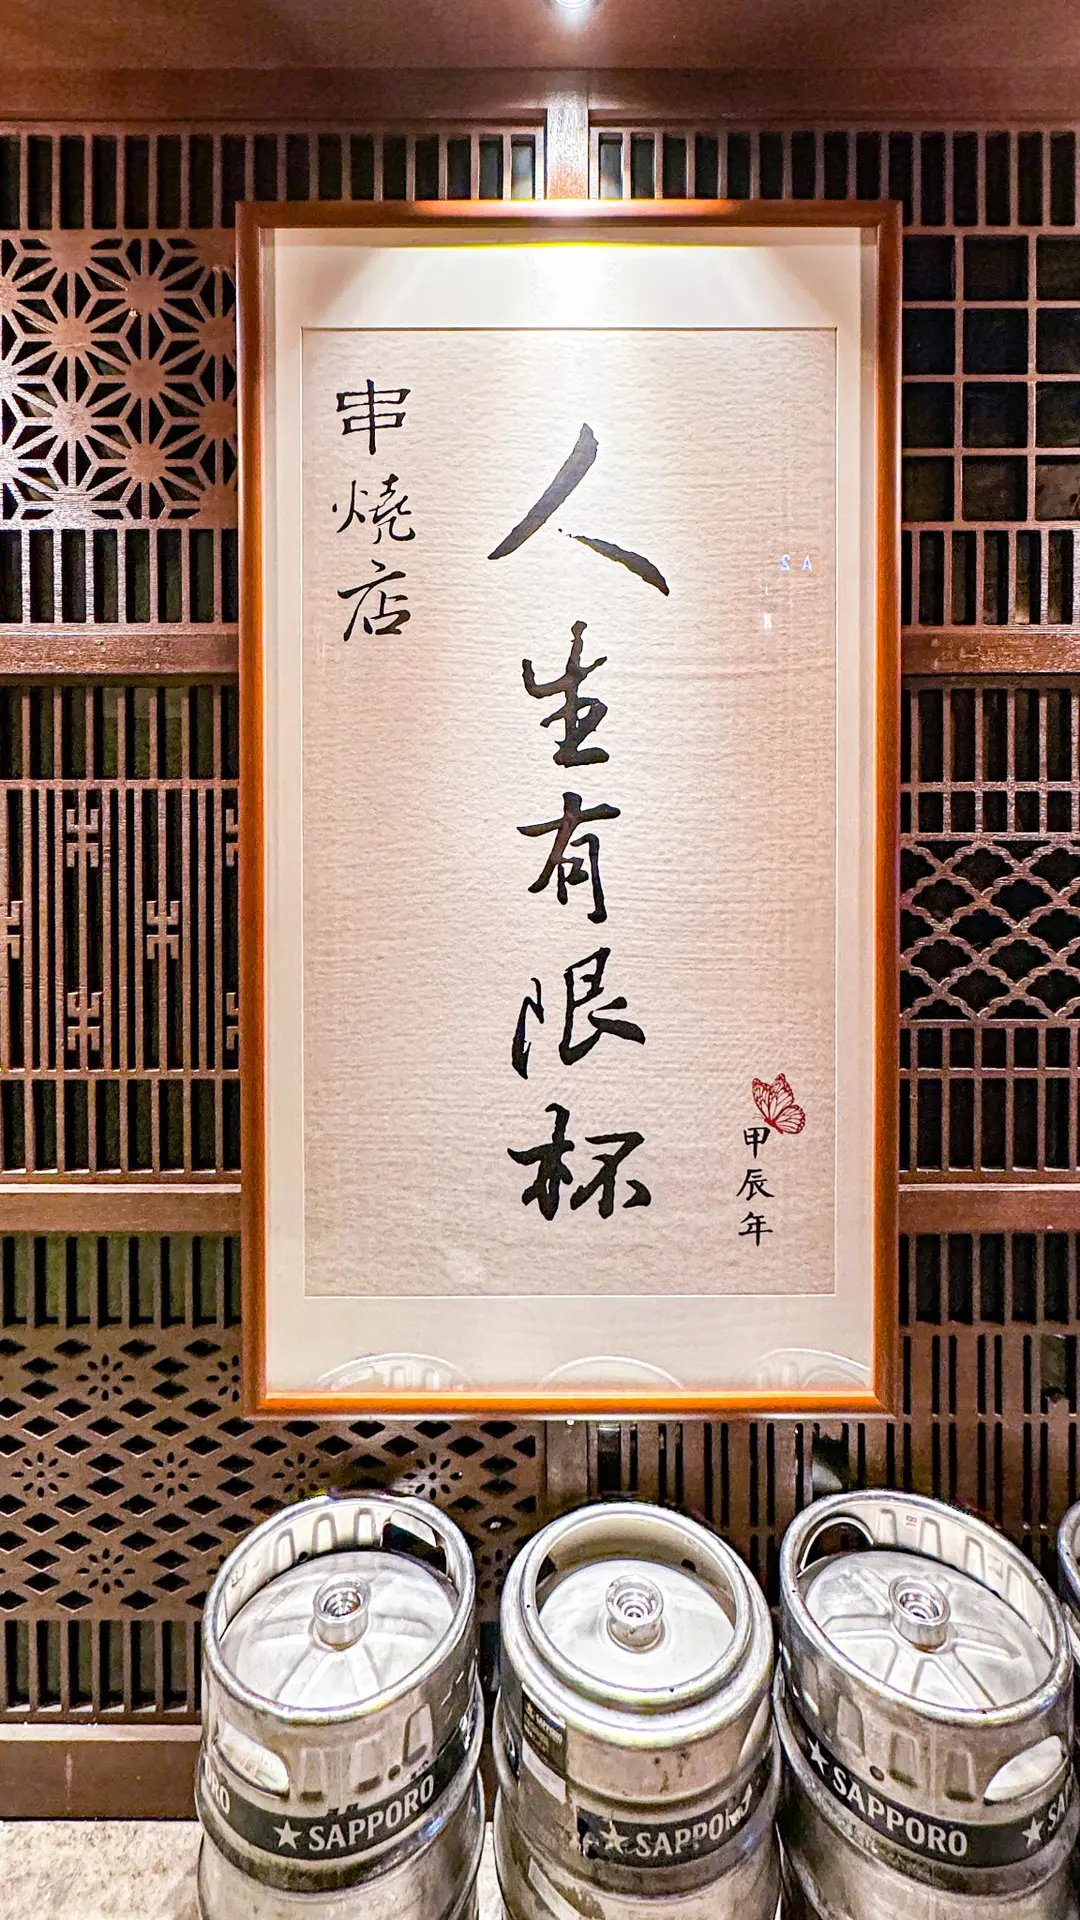 串燒店
人生有限杯
甲辰年
SAPPORO
SAPPORO
SAPPORO